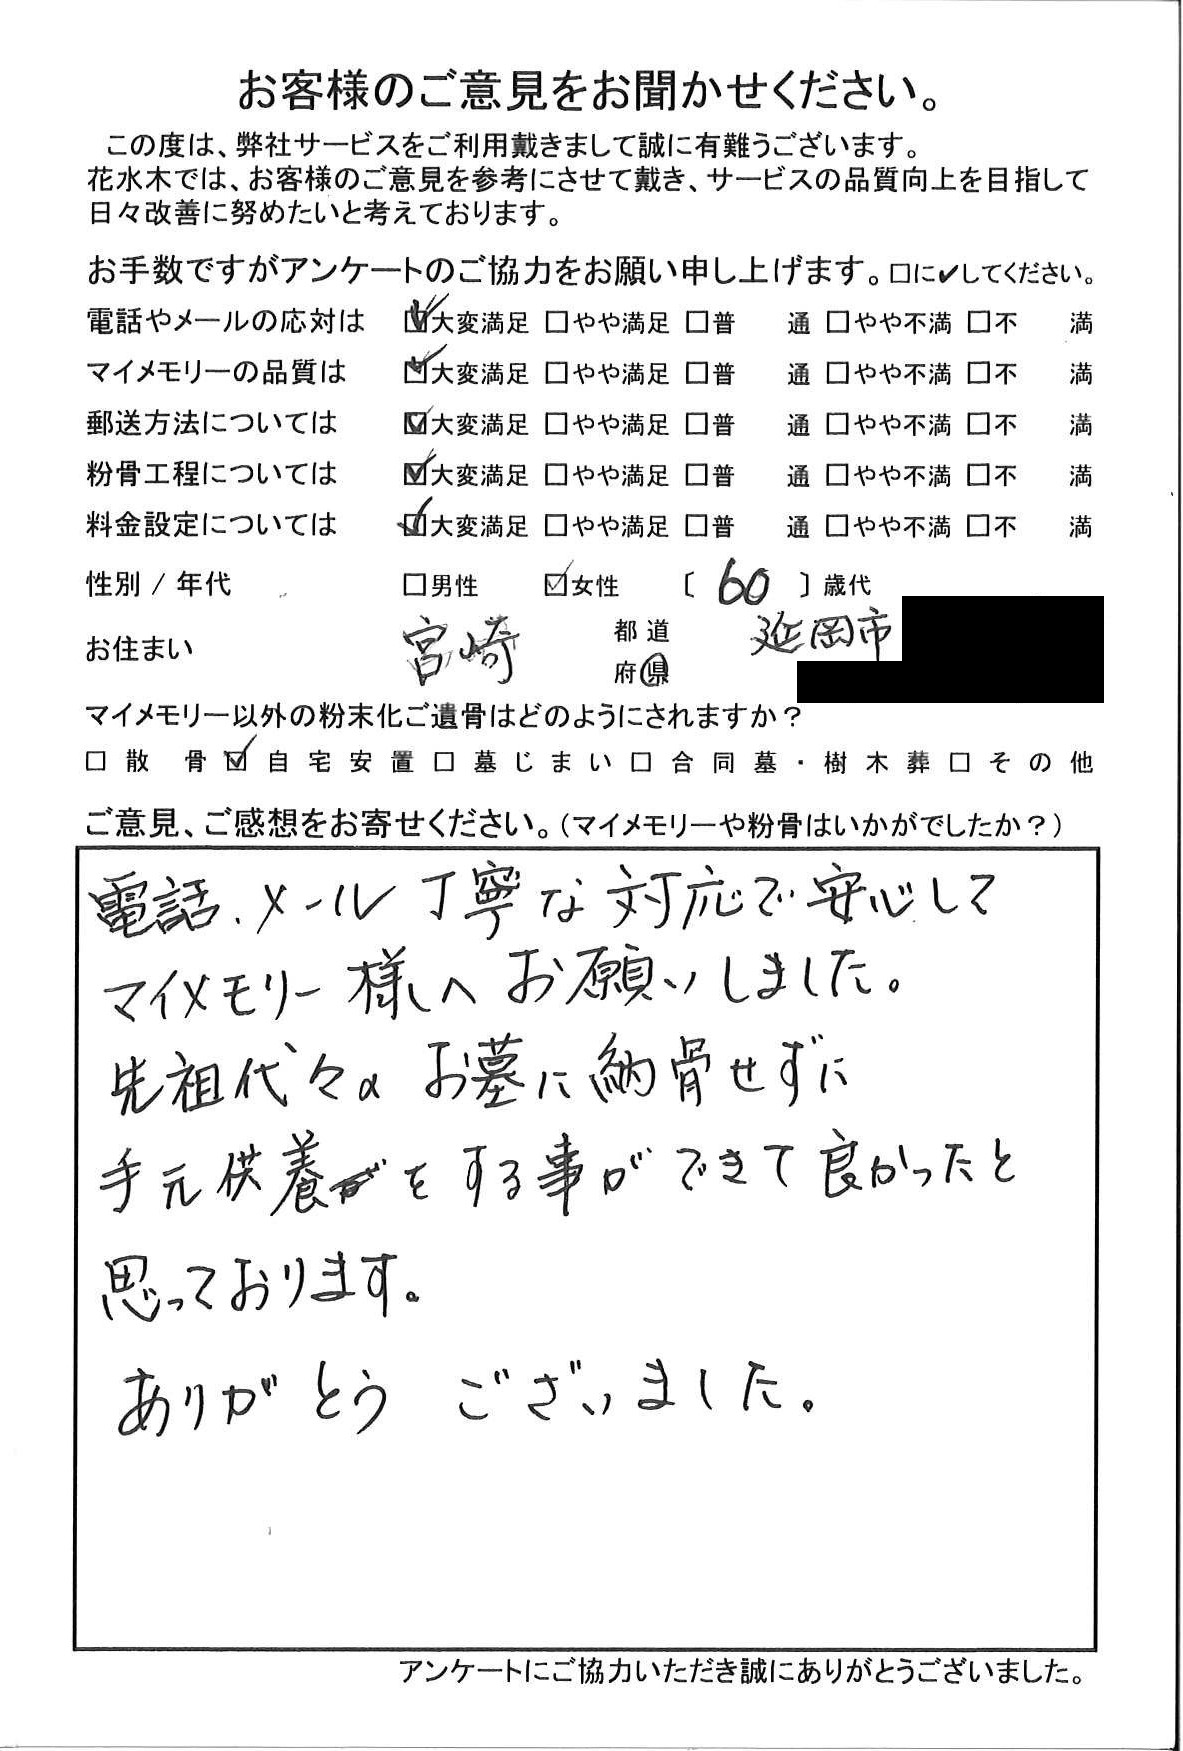 お客様のご意見をお聞かせください。
この度は、弊社サービスをご利用戴きまして誠に有難うございます。
花水木では、お客様のご意見を参考にさせて戴き、サービスの品質向上を目指して
日々改善に努めたいと考えております。
お手数ですがアンケートのご協力をお願い申し上げます。□に✔してください。
電話やメールの応対は ☑大変満足 □やや満足 □普 通 □やや不満 □不 満
マイメモリーの品質は ☑大変満足 □やや満足 □普 通 □やや不満 □不 満
郵送方法については ☑大変満足 □やや満足 □普 通 □やや不満 □不 満
粉骨工程については ☑大変満足 □やや満足 □普 通 □やや不満 □不 満
料金設定については ☑大変満足 □やや満足 □普 通 □やや不満 □不 満
性別 / 年代 □男性 ☑女性 〔 60 〕歳代
お住まい 宮崎 都道府県 延岡市
マイメモリー以外の粉末化ご遺骨はどのようにされますか？
□散 骨 ☑自宅安置 □墓じまい □合同墓・樹木葬 □その他
ご意見、ご感想をお寄せください。（マイメモリーや粉骨はいかがでしたか？）
電話、メール丁寧な対応で安心して
マイメモリー様へお願いしました。
先祖代々のお墓に納骨せずに
手元供養をする事ができて良かったと
思っております。
ありがとうございました。
アンケートにご協力いただき誠にありがとうございました。